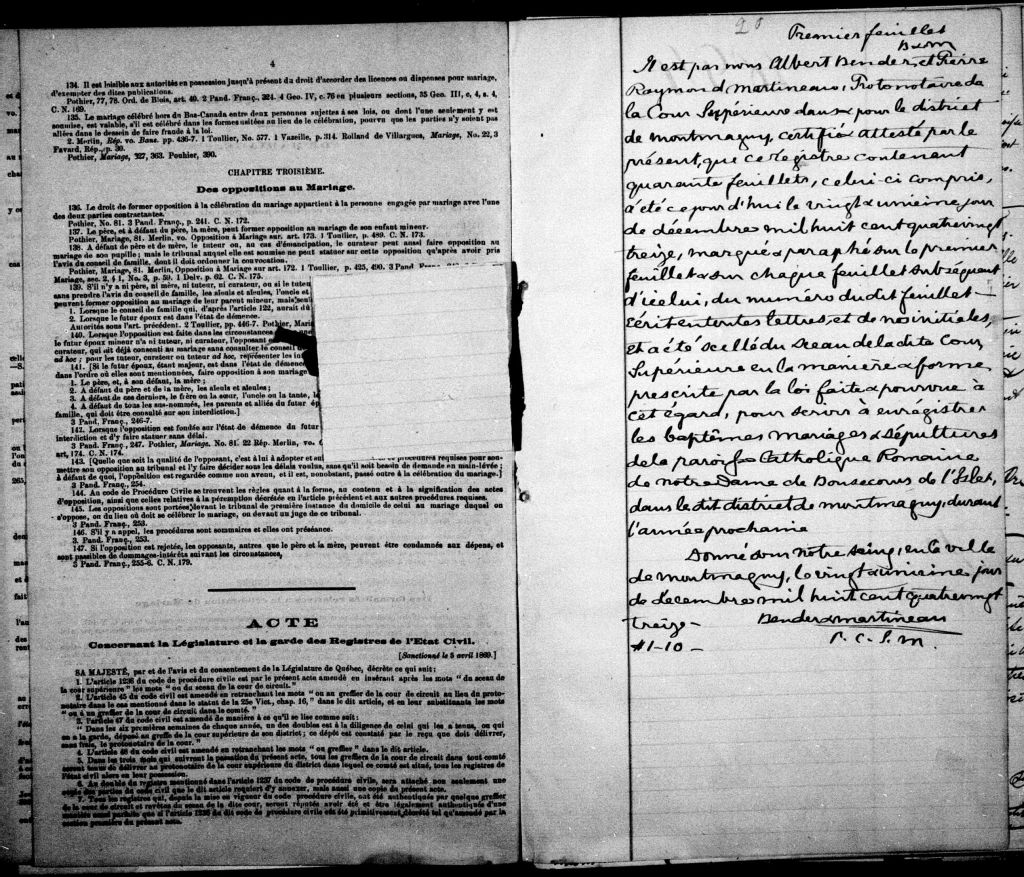 4
134. Il est loisible aux autorités en possession jusqu'à présent du droit d'accorder des licences ou dispenses pour mariage,
d'exempter des dites publications.
Pothier, 77, 78. Ord. de Blois, art. 40. 2 Pand. Franç., 324. 4 Geo. IV, c. 76 en plusieurs sections, 35 Geo. III, c, 4, s. 4,
C. N. 169.
135. Le mariage célébré hors du Bas-Canada entre deux personnes sujettes à ses lois, ou dont l'une seulement y est
soumise, est valable, s'il est célébré dans les formes usitées au lieu de la célébration, pourvu que les parties n'y soient pas
allées dans le dessein de faire fraude à la loi.
2. Merlin, Rép. vo. Bans. pp. 436-7. 1 Toullier, No. 577. 1 Vazeille, p. 314. Rolland de Villargues, Mariage, No. 22, 3
Favard, Rép., p. 30.
Pothier, Mariage, 327, 363. Pouhier, 390.
CHAPITRE TROISIÈME.
Des oppositions au Mariage.
136. Le droit de former opposition à la célébration du mariage appartient à la personne engagée par mariage avec l'une
des deux parties contractantes.
Pothier, No. 81. 3 Pand. Franç., p. 241. C. N. 172.
137. Le père, et à défaut du père, la mère, peut former opposition au mariage de son enfant mineur.
Pothier, Mariage, 81. Merlin, vo. Opposition à Mariage sur. art. 173. 1 Toullier, p. 489. C. N. 173.
138. A défaut de père et de mère, le tuteur ou, au cas d'émancipation, le curateur peut aussi faire opposition au
mariage de son pupille; mais le tribunal auquel elle est soumise ne peut statuer sur cette opposition qu'après avoir pris
l'avis du conseil de famille, dont il doit ordonner la convocation.
Pothier, Mariage, 81. Merlin, Opposition à Mariage sur art. 172. 1 Toullier, p. 425, 490. 3 Pand. Franç.
Mariage, sec. 2, § 1, No. 3, p. 59. 1 Delv. p. 62. C. N. 175.
139. S'il n'y a ni père, ni mère, ni tuteur, ni curateur, ou si le tuteu
sans prendre l'avis du conseil de famille, les aïeuls et aïeules, l'oncle et
peuvent former opposition au mariage de leur parent mineur, mais seul
1. Lorsque le conseil de famille qui, d'après l'article 122, aurait dû
2. Lorsque le futur époux est dans l'état de démence.
Autorités sous l'art. précédent. 2 Toullier, pp. 446-7. Pothier, Mari
140. Lorsque l'opposition est faite dans les circonstances
le futur époux mineur n'a ni tuteur, ni curateur, l'opposant e
curateur, qui ait déjà consenti au mariage sans consulter le conseil d
ad hoc; pour les tuteur, curateur ou tuteur ad hoc, représenter les int
141. [Si le futur époux, étant majeur, est dans l'état de démence
dans l'ordre où elles sont mentionnées, faire opposition à son mariage
1. Le père, et, à son défaut, la mère;
2. A défaut du père et de la mère, les aïeuls et aïeules;
3. A défaut de ces derniers, le frère ou la sœur, l'oncle ou la tante, le
4. A défaut de tous les sus-nommés, les parents et alliés du futur ép
famille, qui doit être consulté sur son interdiction.]
3 Pand. Franç., 246-7.
142. Lorsque l'opposition est fondée sur l'état de démence du futur
interdiction et d'y faire statuer sans délai.
3 Pand. Franç., 247. Pothier, Mariage. No. 81. 22 Rép. Merlin, vo.
art, 174. C. N. 174.
143. [Quelle que soit la qualité de l'opposant, c'est à lui à adopter et procédures requises pour sou-
mettre son opposition au tribunal et l'y faire décider sous les délais voulus, sans qu'il soit besoin de demande en main-levée;
à défaut de quoi, l'opposition est regardée comme non avenue, et il est, nonobstant, passé outre à la célébration du mariage.]
3 Pand. Franç., 254.
144. Au code de Procédure Civile se trouvent les règles quant à la forme, au contenu et à la signification des actes
d'opposition, ainsi que celles relatives à la péremption décrétée en l'article précédent et aux autres procédures requises.
145. Les oppositions sont portées devant le tribunal de première instance du domicile de celui au mariage duquel on
s'oppose, ou du lieu où doit se célébrer le mariage, ou devant un juge de ce tribunal.
3 Pand. Franç., 253.
146. S'il y a appel, les procédures sont sommaires et elles ont préséance.
3. Pand. Franç., 253.
147. Si l'opposition est rejetée, les opposants, autres que le père et la mère, peuvent être condamnés aux dépens, et
sont passibles de dommages-intérêts suivant les circonstances,
3 Pand. Franç., 255-6. C. N. 179.
ACTE
Concernant la Législature et la garde des Registres de l'Etat Civil.
[Sanctionné le 5 avril 1869.]
SA MAJESTÉ, par et de l'avis et du consentement de la Législature de Québec, décrète ce qui suit:
1. L'article 1236 du code de procédure civile est par le présent acte amendé en insérant après les mots "du sceau de
la cour supérieure" les mots "ou du sceau de la cour de circuit."
2. L'article 45 du code civil est amendé en retranchant les mots "ou au greffier de la cour de circuit au lieu du proto-
notaire dans le cas mentionné dans le statut de la 25e Vict., chap. 16," dans le dit article, et en leur substituant les mots
"ou à un greffier de la cour de circuit dans le comté."
3. l'article 47 du code civil est amendé de manière à ce qu'il se lise comme suit:
"Dans les six premières semaines de chaque année, un des doubles est à la diligence de celui qui les a tenus, ou qui
en a la garde, déposé au greffe de la cour supérieure de son district; ce dépôt est constaté par le reçu que doit délivrer,
sans frais, le protonotaire de la cour."
4. L'article 48 du code civil est amendé en retranchant les mots "ou greffier" dans le dit article.
5. Dans les trois mois qui suivront la passation du présent acte, tous les greffiers de la cour de circuit dans tout comté
seront tenus de délivrer au protonotaire de la cour supérieure du district dans lequel ce comté est situé, tous les registres de
l'état civil alors en leur possession.
6. Au double du registre mentionné dans l'article 1237 du code de procédure civile, sera attaché non seulement une
copie des parties du code civil que le dit article requiert d'y annexer, mais aussi une copie du présent acte.
7. Tous les registres qui, depuis la mise en vigueur du code de procédure civile, ont été authentiqués par quelque greffier
de la cour de circuit et revêtus du sceau de la dite cour, seront réputés avoir été et être légalement authentiqués d'une
manière aussi parfaite que si l'article 1236 du dit code de procédure civile eût été primitivement décrété tel qu'amendé par la
section première du présent acte.
20
Premier feuillet
B & M
Il est par nous Albert Bender, et Pierre
Raymond, Martineau, Protonotaire de
la Cour Supérieure dans & pour le district
de Montmagny, certifié & attesté par le
présent, que ce registre contenant
quarante feuillets, celui-ci compris,
a été ce jour d'hui le vingt & unieme jour
de decembre mil huit cent quatrevingt
treize, marqué & paraphé sur le premier
feuillet & sur chaque feuillet subséquent
d'icelui, du numéro du dit feuillet
écrit en toutes lettres, et de nos initiales,
et a été scellé du sceau de la dite Cour
Supérieure en la manière & forme
prescrite par la loi faite & pourvue à
cet égard, pour servir à enrégistrer
les baptêmes mariages & sépultures
de la Paroisse Catholique Romaine
de Notre Dame de Bonsecours de l'Islet,
dans le dit district de Montmagny, durant
l'année prochaine
Donné sous notre seing, en la ville
de Montmagny, le vingt & unieme jour
de decembre mil huit cent quatrevingt
treize-
Bender & Martineau
$1-10-
P. C. S. M.